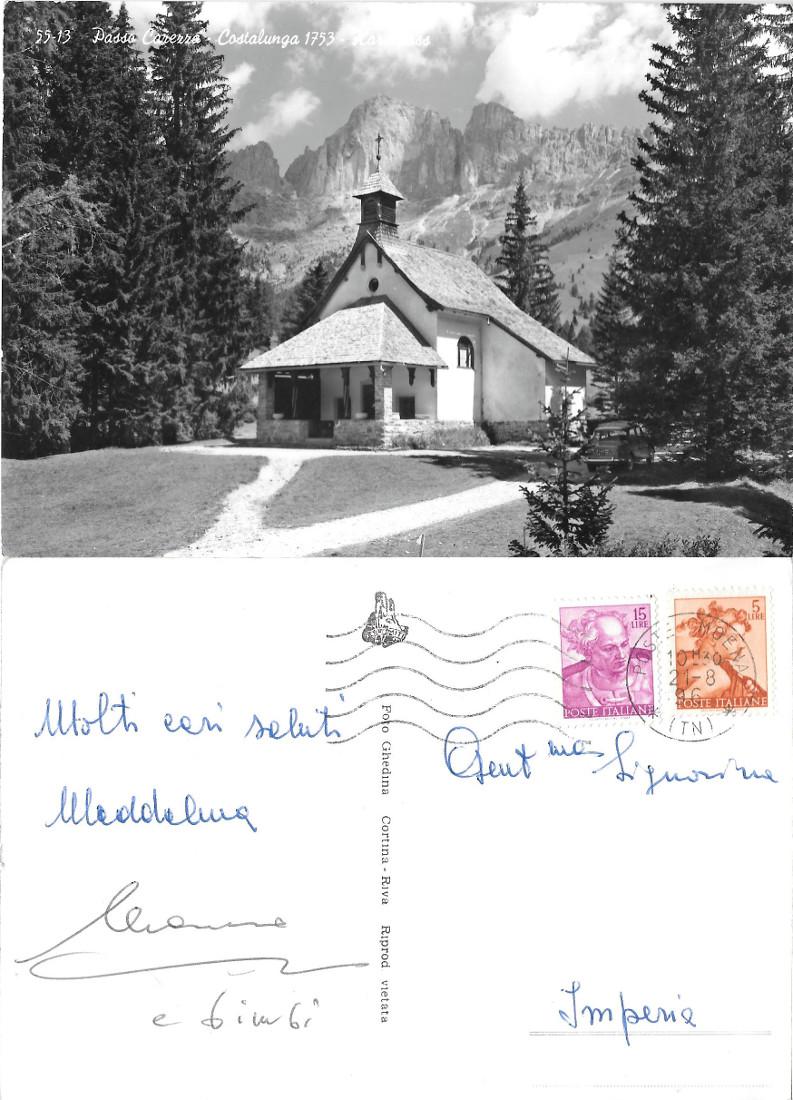 55-13 Passo Carezza - Costalunga 1753 -
15
LIRE
POSTE ITALIANE
5
LIRE
POSTE ITALIANE
MOENA
10 30
21-8
(TN)
Molti cari saluti
Maddalena
e bimbi
Foto Ghedina Cortina - Riva Riprod vietata
Gent ma Signorina
Imperia